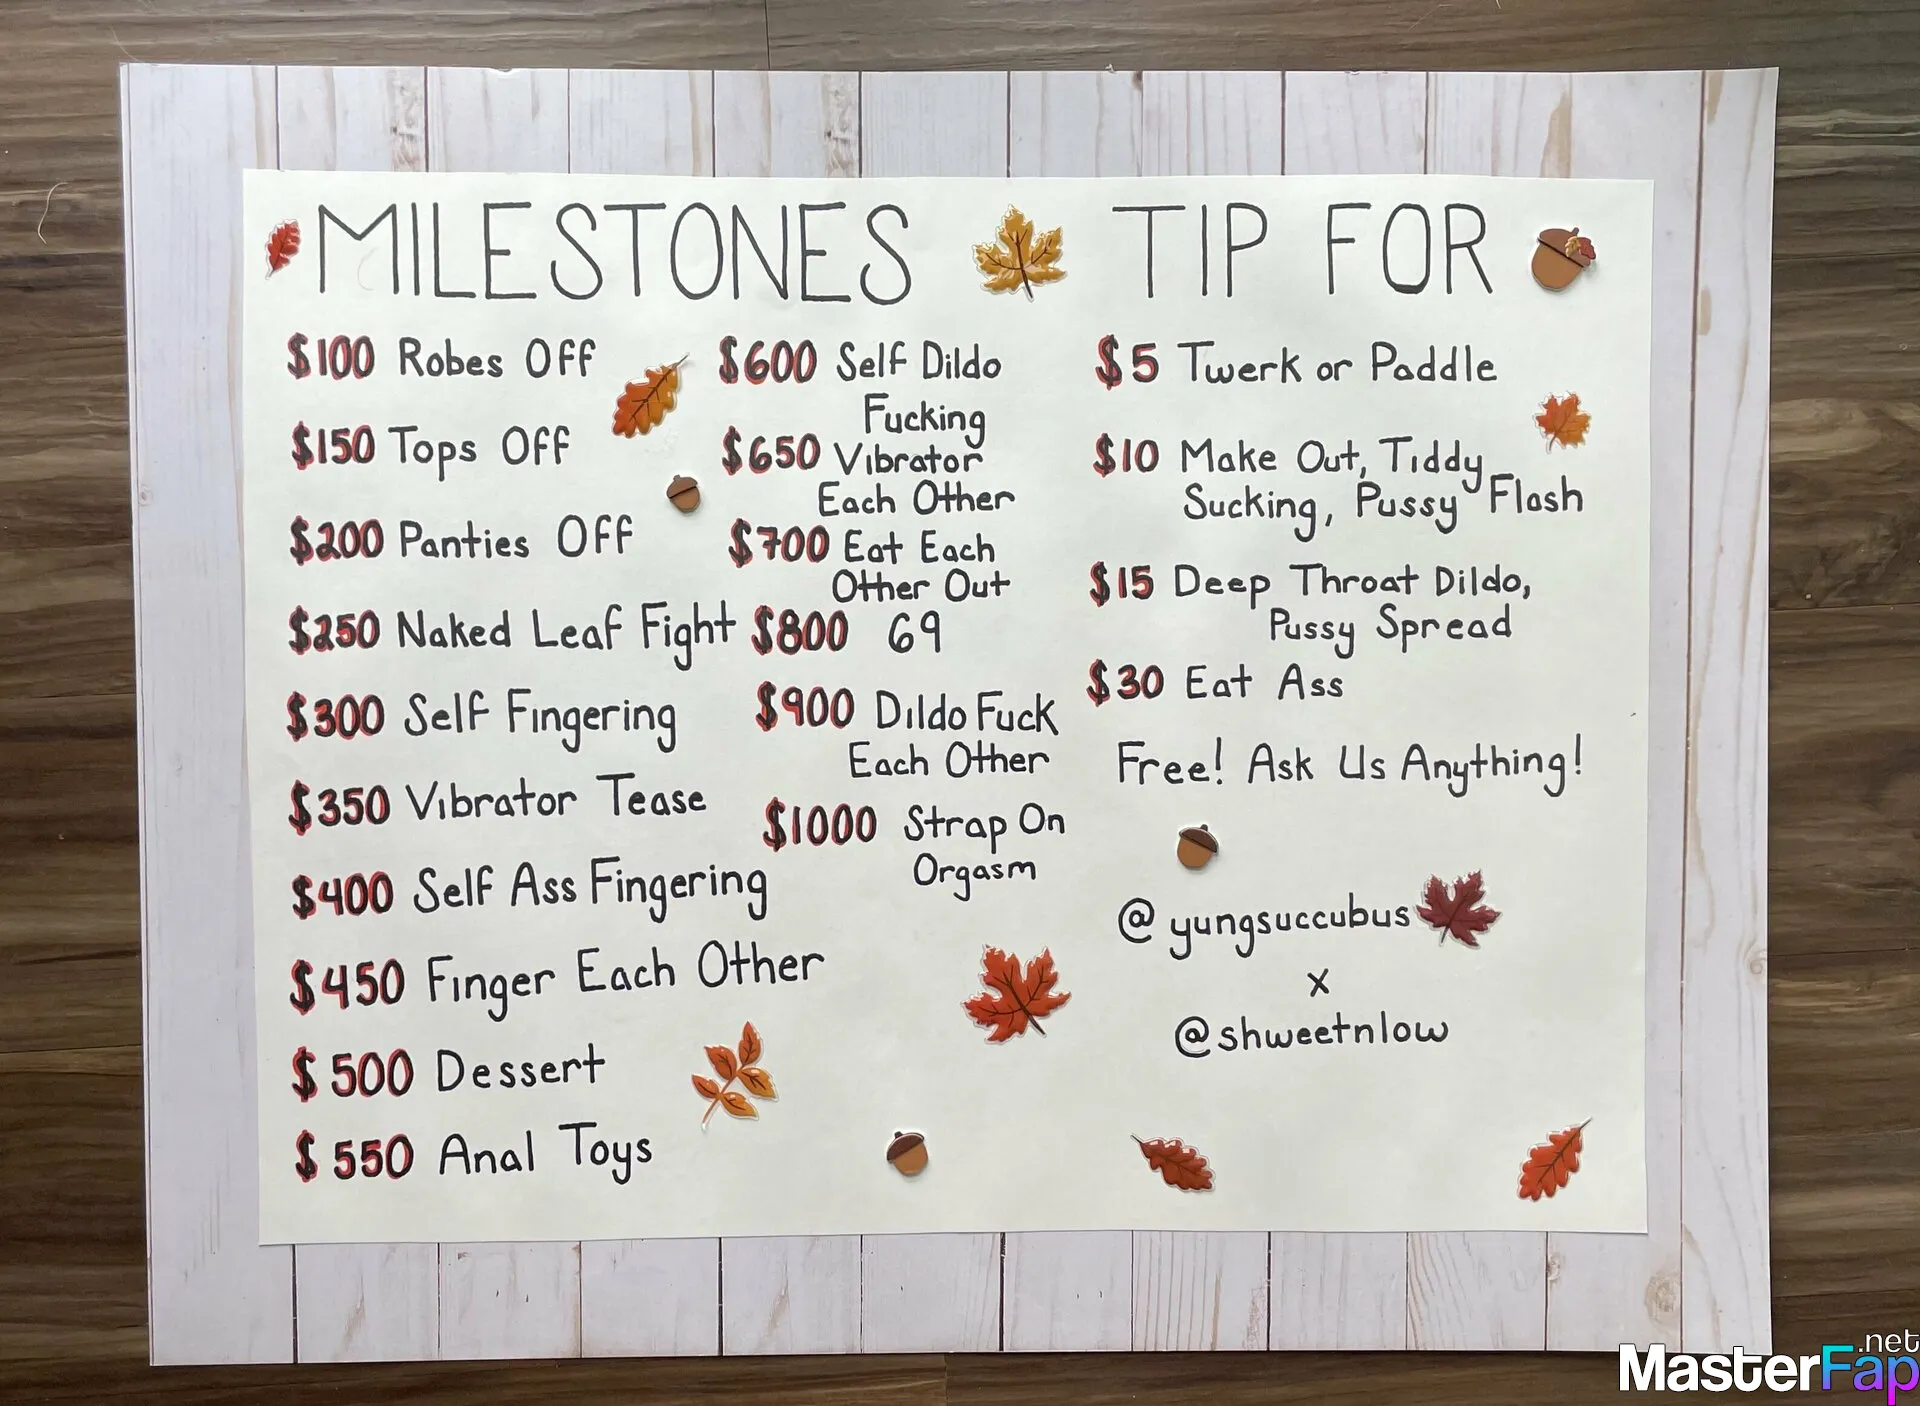 MILESTONES
$100 Robes Off
$150 Tops Off
$200 Panties Off
$250 Naked Leaf Fight
$300 Self Fingering
$350 Vibrator Tease
$400 Self Ass Fingering
$450 Finger Each Other
$500 Dessert
$550 Anal Toys
$600 Self Dildo
Fucking
$650 Vibrator
Each Other
$700 Eat Each
Other Out
$800 69
$900 Dildo Fuck
Each Other
$1000 Strap On
Orgasm
TIP FOR
$5 Twerk or Paddle
$10 Make Out, Tiddy
Sucking, Pussy Flash
$15 Deep Throat Dildo,
Pussy Spread
$30 Eat Ass
Free! Ask Us Anything!
@yungsuccubus
x
@shweetnlow
MasterFap.net